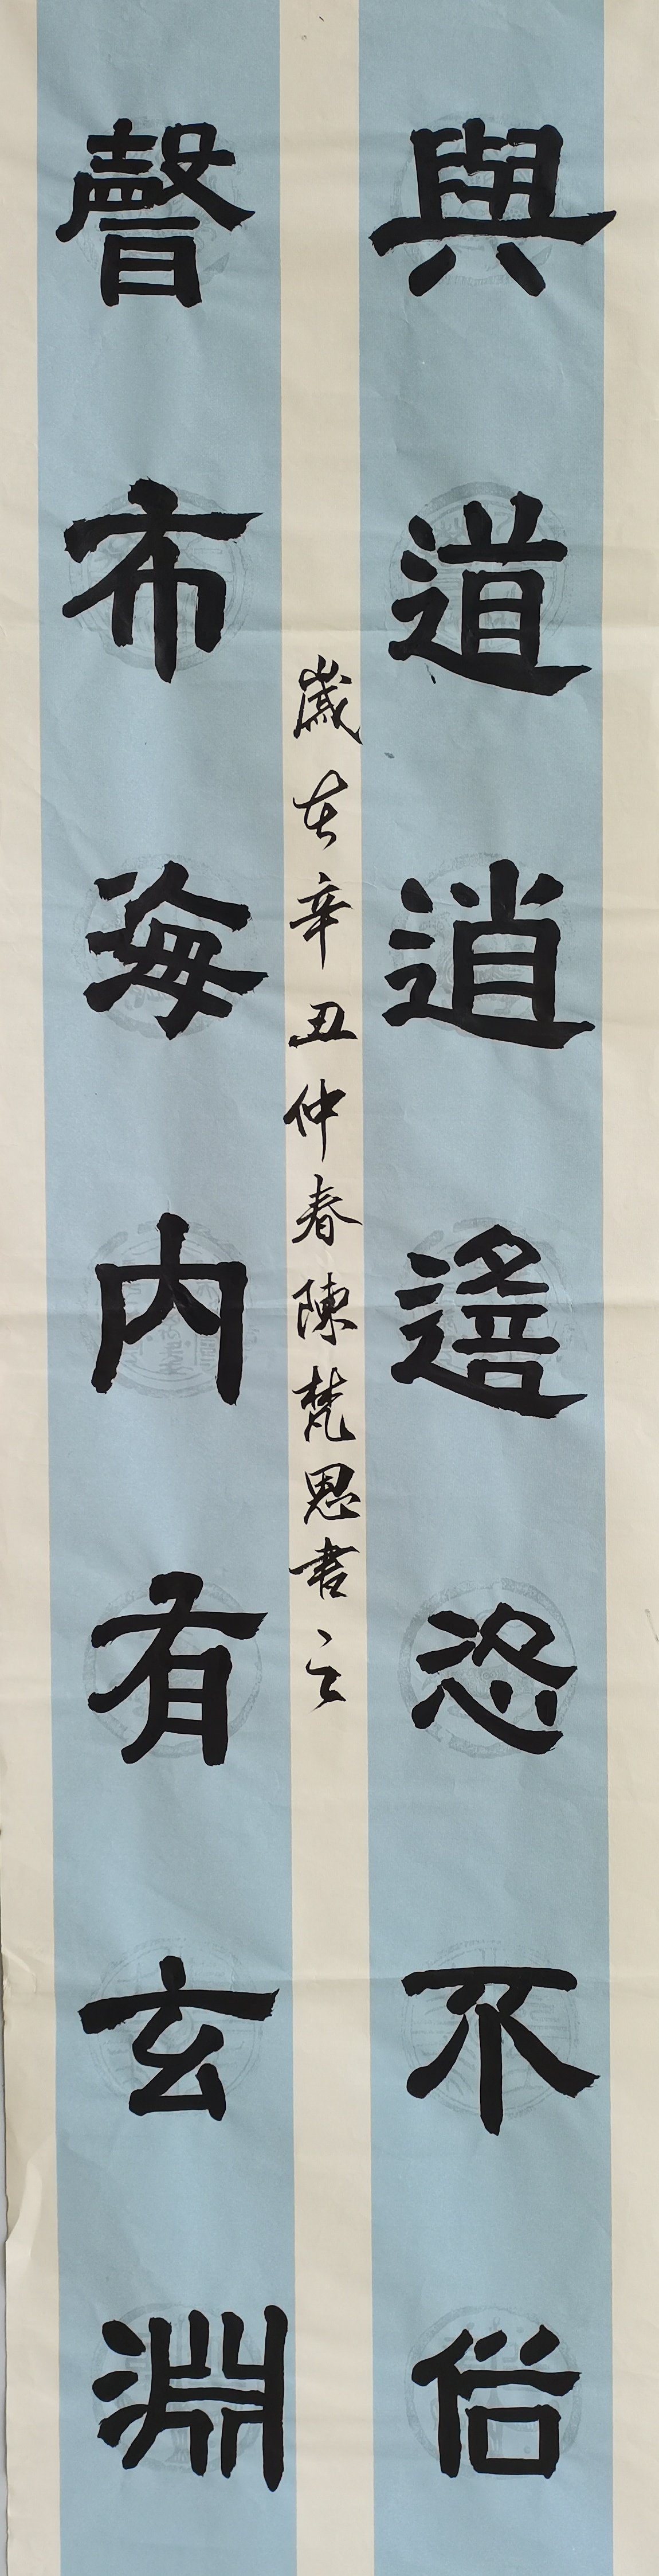 與道逍遙恐不俗
聲布海内有玄淵
歲在辛丑仲春陳梵恩書之